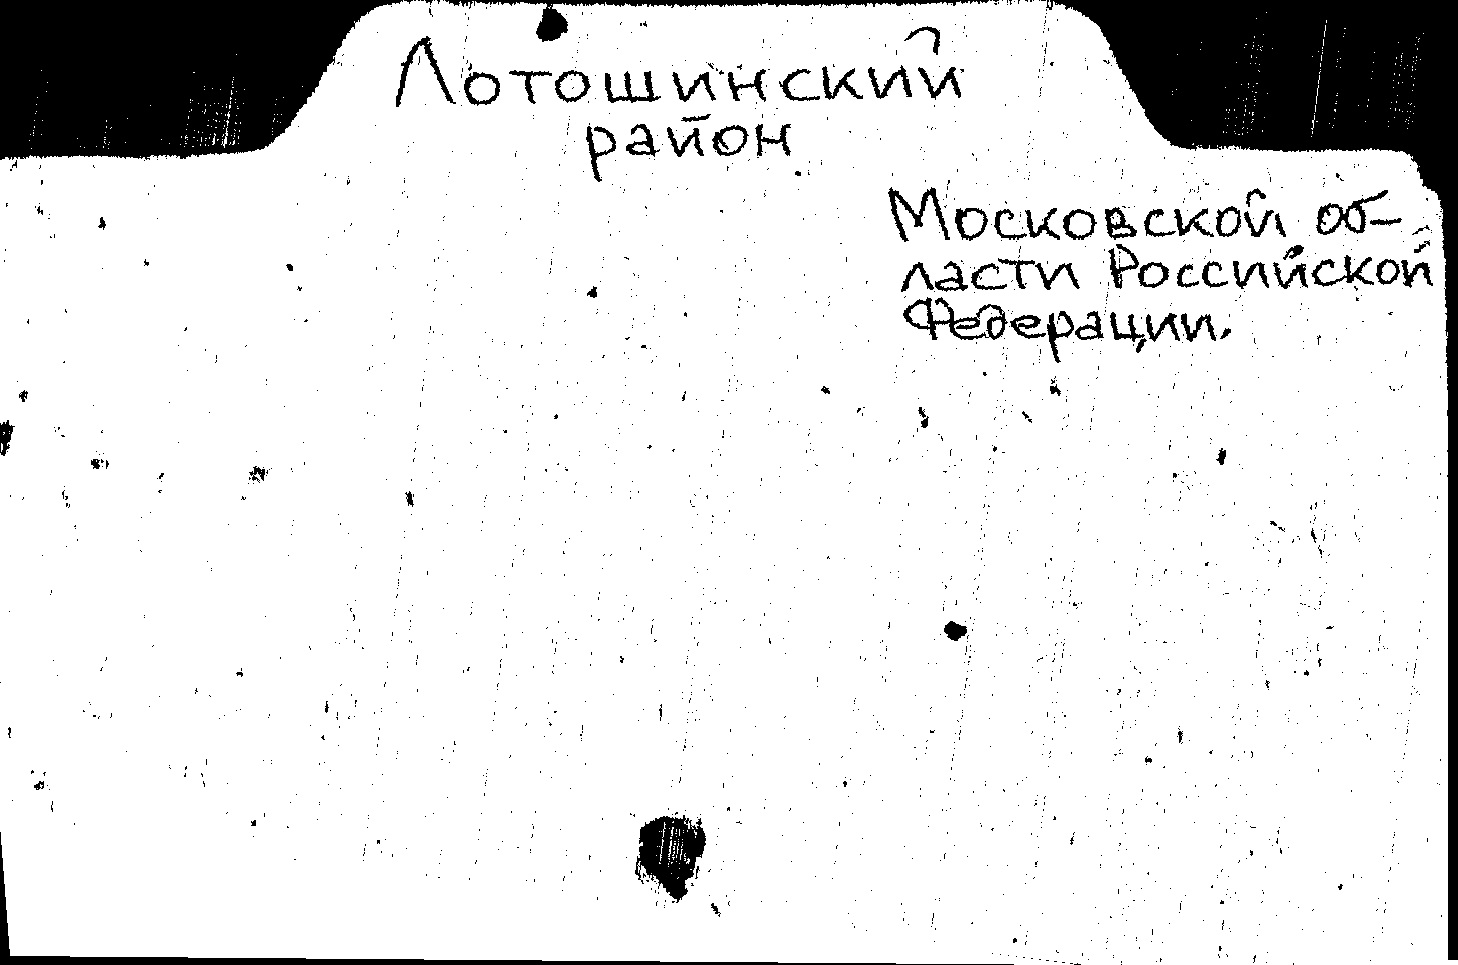 Лотошинский
район
Московской об-
ласти Российской
Федерации.